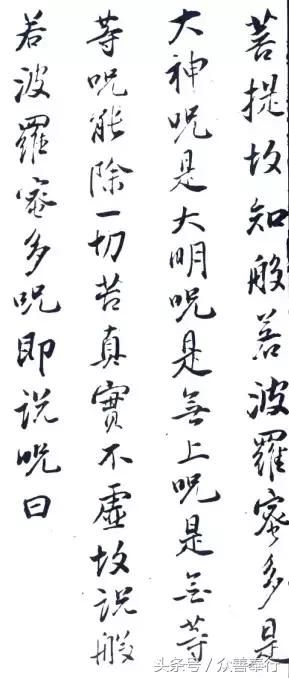 菩提故知般若波羅蜜多是
大神咒是大明咒是無上咒是無等
等咒能除一切苦真實不虛故說般
若波羅蜜多咒即說咒曰
头条号／众善奉行